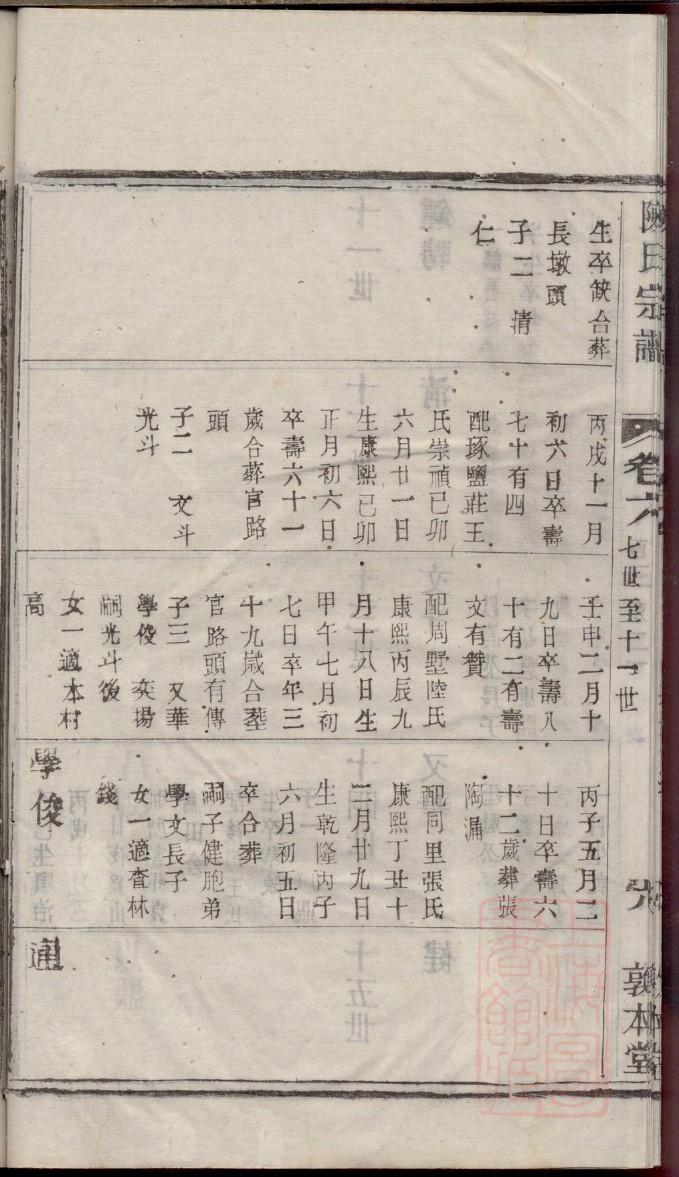 陳氏宗譜
卷六
七世至十一世
敦本堂
生卒缺合葬
長墩頭
子二 清
仁
丙戌十一月
初六日卒壽
七十有四
配琢鹽莊王
氏崇禎己卯
六月廿一日
生康熙己卯
正月初六日
卒壽六十一
歲合葬官路
頭
子二 文斗
光斗
壬申二月十
九日卒壽八
十有二有壽
文有贊
配周墅陸氏
康熙丙辰九
月十八日生
甲午七月初
七日卒年三
十九歲合塟
官路頭有傳
子三 又華
學俊 奕揚
嗣光斗後
女一適本村
高
丙子五月二
十日卒壽六
十二歲葬張
陶漏
配同里張氏
康熙丁丑十
二月廿九日
生乾隆丙子
六月初五日
卒合葬
嗣子健胞弟
學文長子
女一適查林
錢
學俊
通